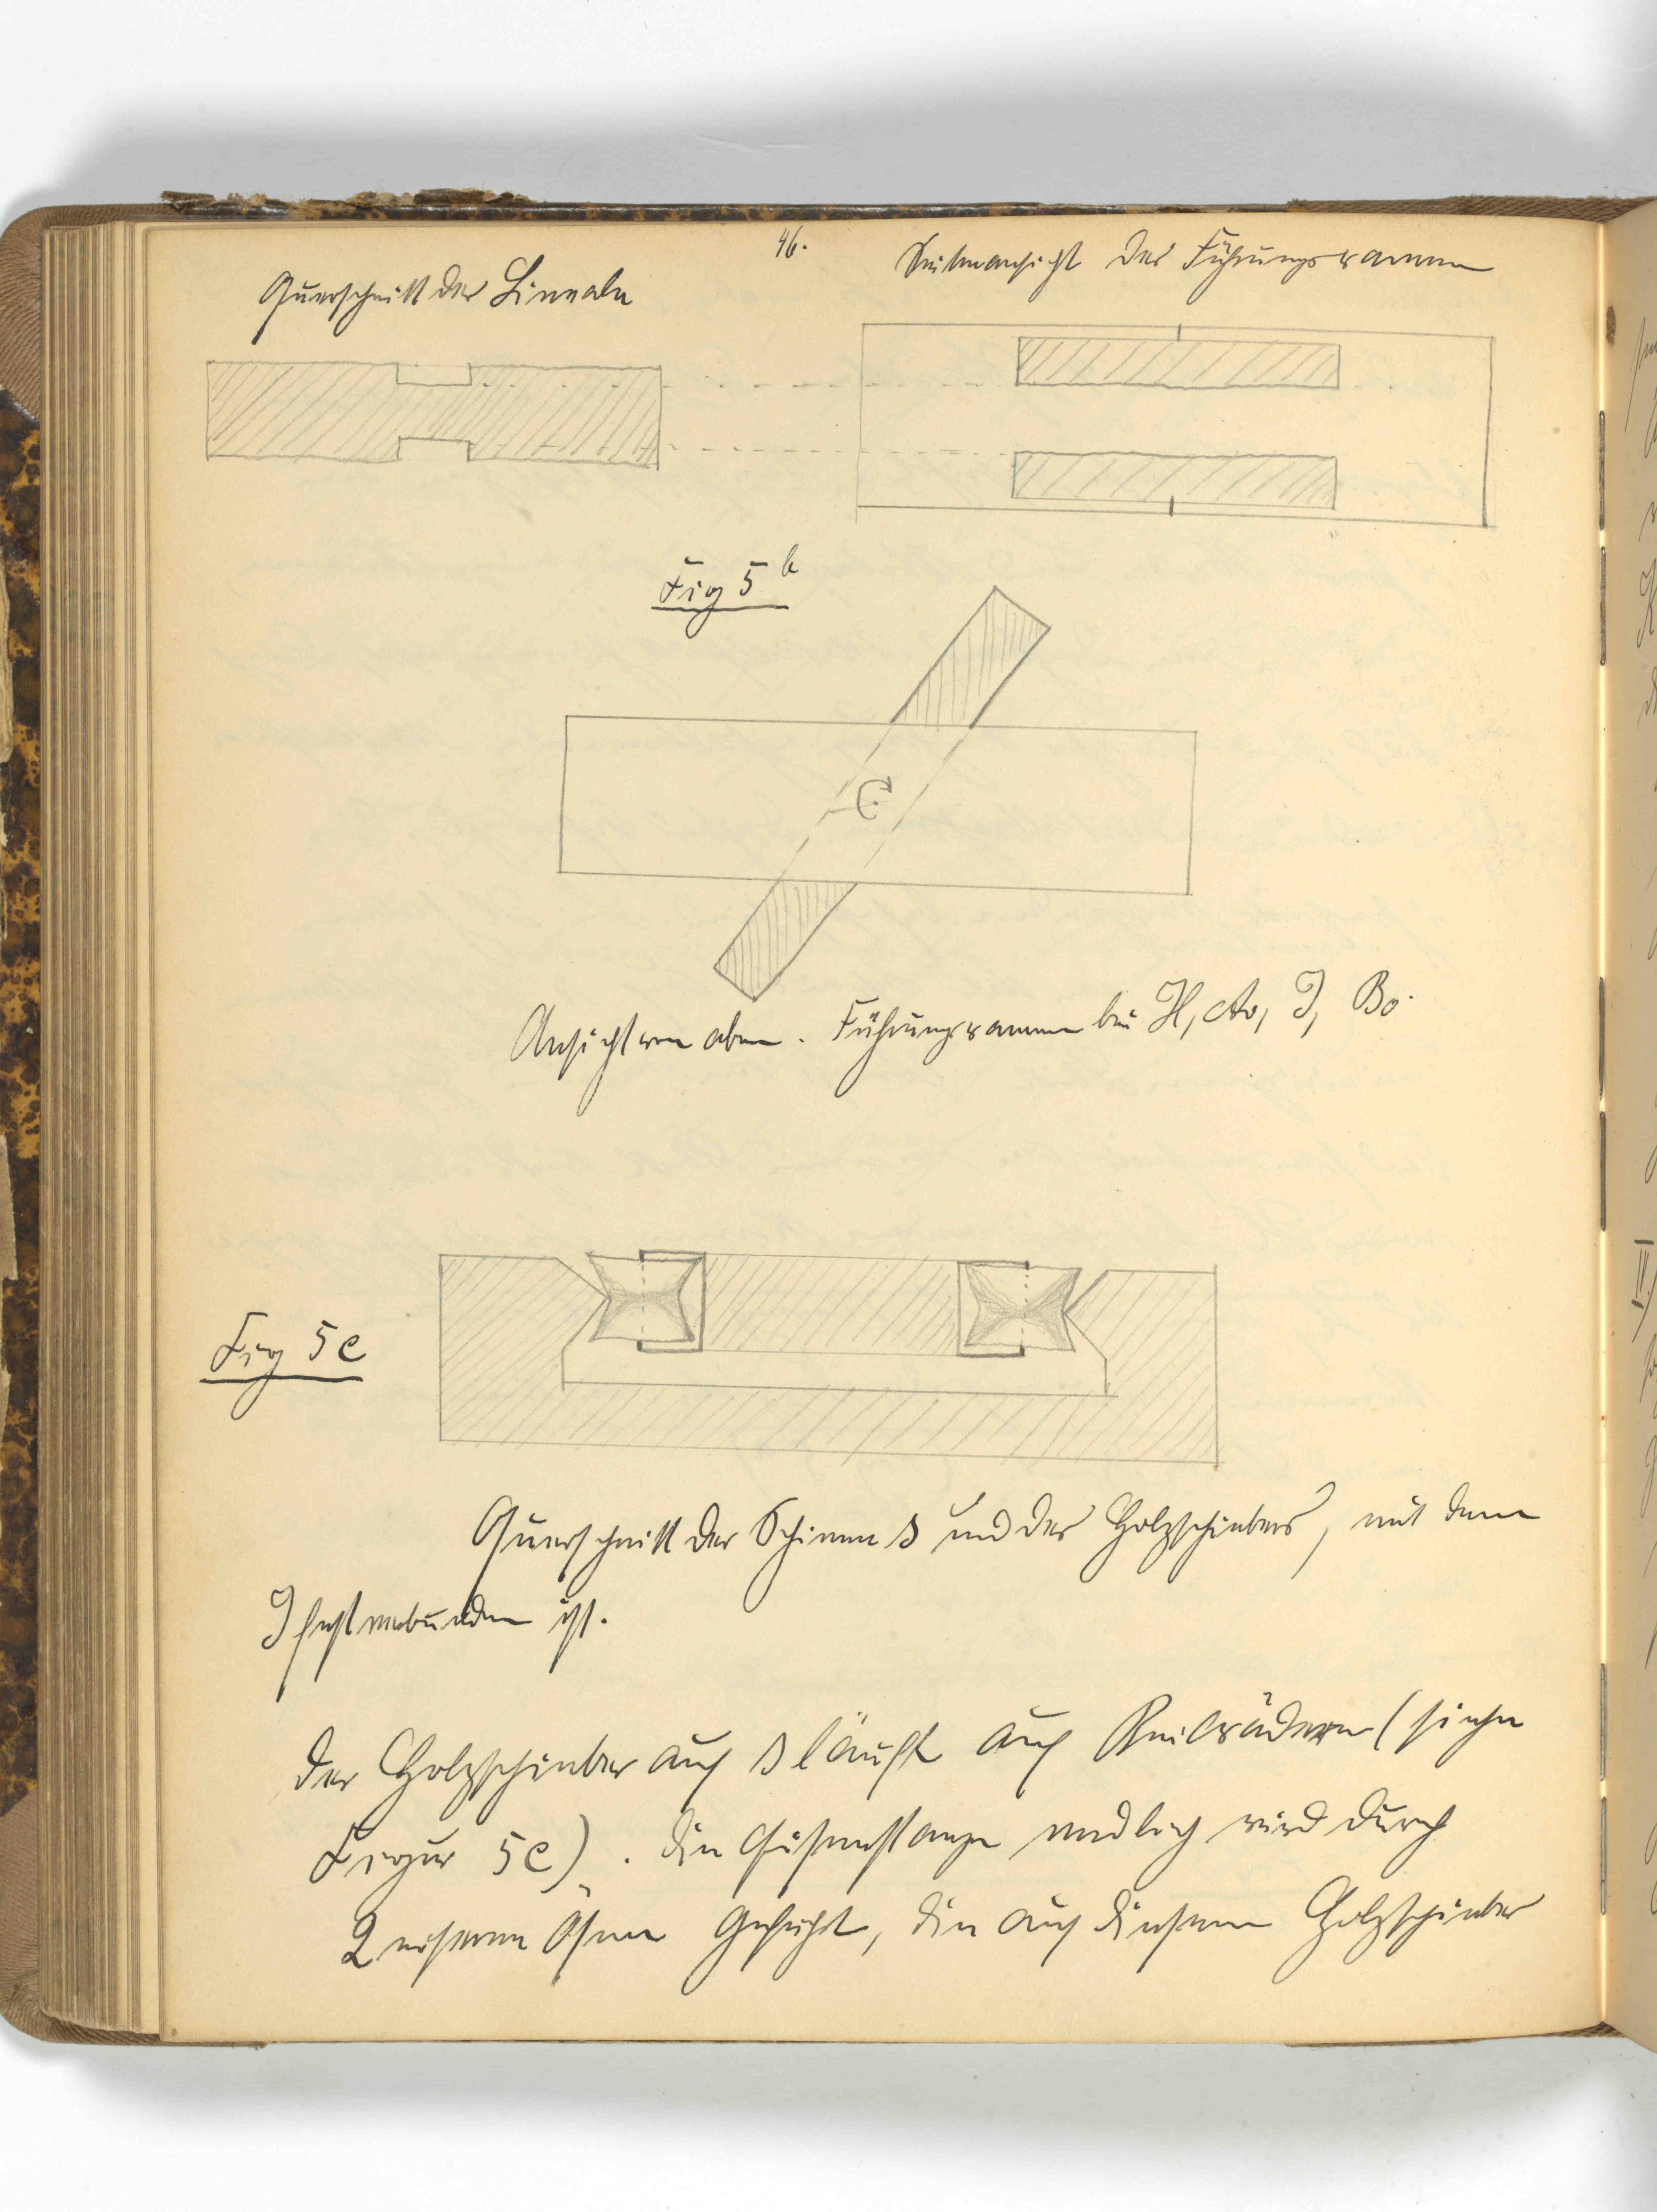 46.
Querschnitt der Lineale
Seitenansicht der Führungsrahmen
Fig 5 b
Ansicht von oben. Führungsrahmen bei H, A0, J, B0.
Fig 5 c
Querschnitt der Schiene s und des Holzschiebers, mit dem
J fest verbunden ist.
Der Holzschieber auf s läuft auf Rillrädern (siehe
Figur 5c). Die Eisenstange endlich wird durch
2 eiserne Ösen geführt, die auf diesem Holzschieber